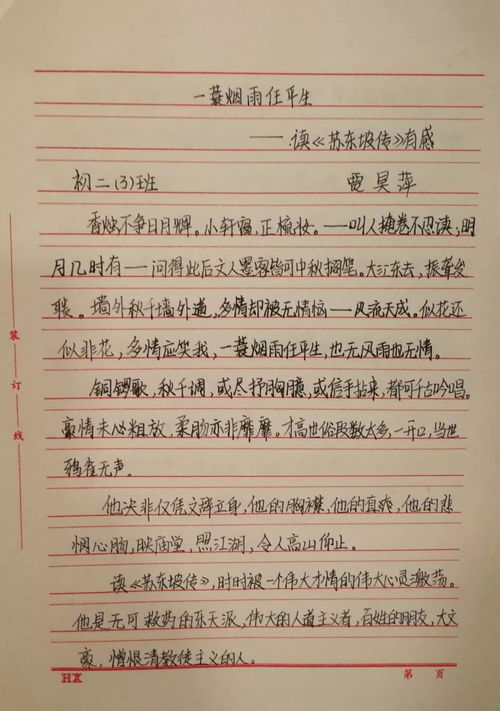 一蓑烟雨任平生
——读《苏东坡传》有感
初二(3)班 贾昊萍
香烛不争日月辉。小轩窗,正梳妆。——叫人掩卷不忍读;明
月几时有——问得此后文人墨客皆可中秋搁笔。大江东去,振聋发
聩。墙外秋千墙外道,多情却被无情恼——风流天成。似花还
似非花,多情应笑我,一蓑烟雨任平生,也无风雨也无情。
铜锣歌,秋千调,或尽抒胸臆,或信手拈来,都可千古吟唱。
豪情未必粗放,柔肠亦非靡靡。才高世俗段数太多,一开口,当世
鸦雀无声。
他决非仅凭文辞立身,他的胸襟,他的直爽,他的悲
悯心肠,映庙堂,照江湖,令人高山仰止。
读《苏东坡传》,时时被一个伟大才情的伟大心灵激荡。
他是无可救药的乐天派,伟大的人道主义者,百姓的朋友,大文
豪,憎恨清教徒主义的人。
装
订
线
HX 第 页